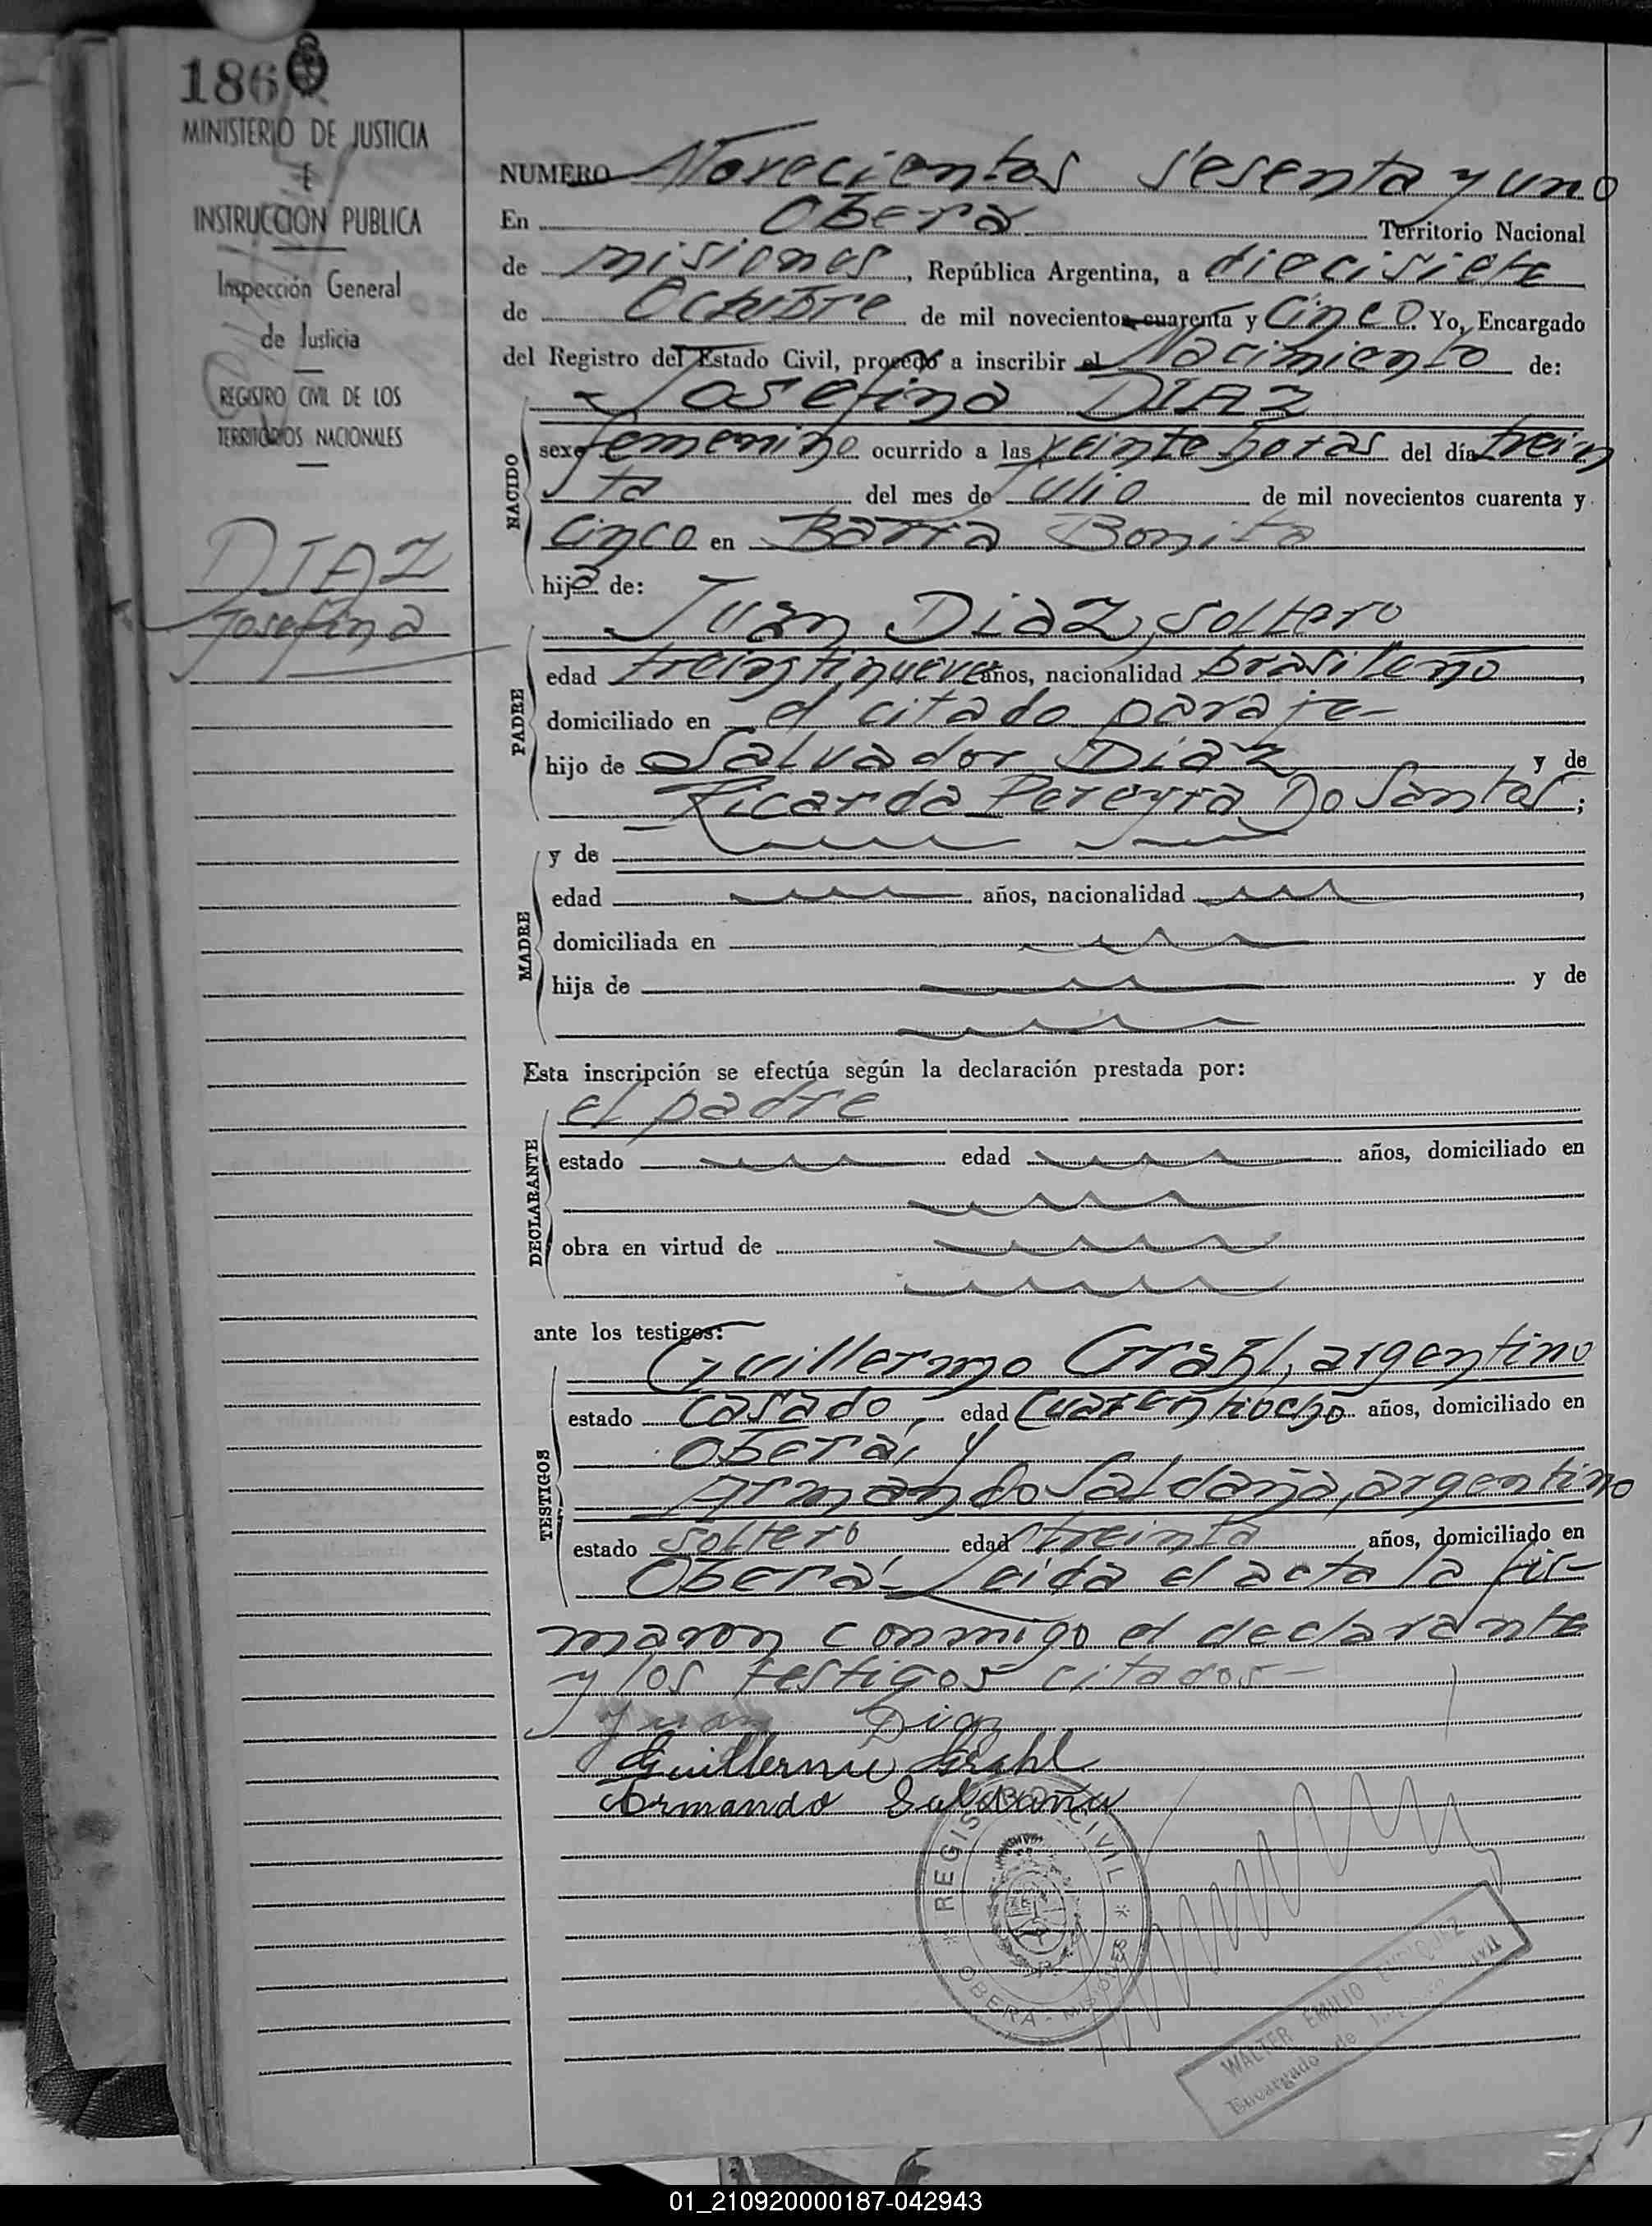 186
MINISTERIO DE JUSTICIA
E
INSTRUCCION PUBLICA
Inspección General
de Justicia
REGISTRO CIVIL DE LOS
TERRITORIOS NACIONALES
DIAZ
Josefina
NUMERO Novecientos sesenta y uno
En Oberá Territorio Nacional
de misiones, República Argentina, a diecisiete
de Octubre de mil novecientos cuarenta y cinco. Yo, Encargado
del Registro del Estado Civil, procedo a inscribir el Nacimiento de:
Josefina DIAZ
NACIDO
sexo femenino ocurrido a las veinte horas del día trein
ta del mes de Julio de mil novecientos cuarenta y
cinco en Barra Bonita
hija de:
Juan Diaz, soltero
PADRE
edad treintinueve años, nacionalidad brasileño,
domiciliado en el citado paraje-
hijo de Salvador Diaz y de
Ricarda Pereyra Do Santos;
y de
MADRE
edad años, nacionalidad ,
domiciliada en
hija de y de
Esta inscripción se efectúa según la declaración prestada por:
el padre
DECLARANTE
estado edad años, domiciliado en
obra en virtud de
ante los testigos:
Guillermo Grahl, argentino
TESTIGOS
estado casado, edad cuarentiocho años, domiciliado en
Oberá, y
Armando Saldaña, argentino
estado soltero edad treinta años, domiciliado en
Oberá- Leida el acta la fir-
maron conmigo el declarante
y los testigos citados-
Juan Diaz
Guillermo Grahl
Armando Saldaña
REGISTRO CIVIL
OBERA - MISIONES
WALTER EMILIO ENRIQUEZ
Encargado de
01_210920000187-042943